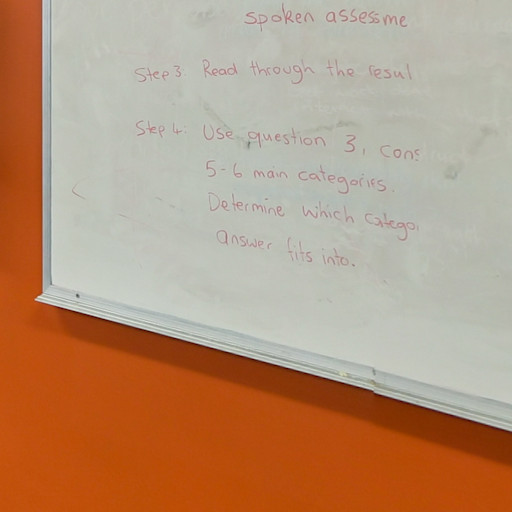 spoken assessme
Step 3 Read through the resul
Step 4: Use question 3, cons
5-6 main categories.
Determine which catego
answer fits into.